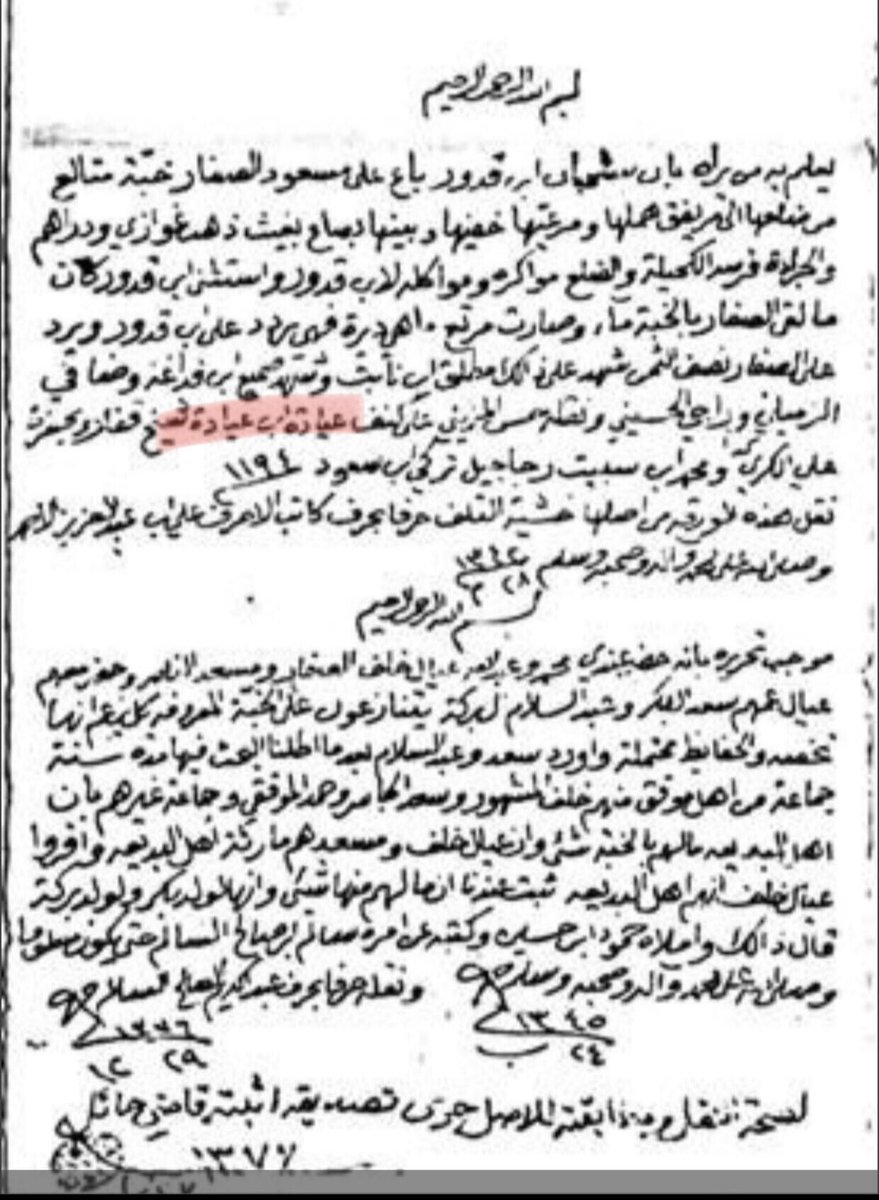 بسم الله الرحمن الرحيم
يعلم به من يراه بان شهبان ابن قدور باع على مسعود الصفار خبة متالع
من ضلعها الى مريفق هملها ومرعيها خفيها وبينها بصاع بغيث ذهب غوازي ودراهم
والجرادة فرسه الكحيلة والضلع مواكره ومواكله لابن قدور واستثنى ابن قدور كان
ما لقى الصفار بالخبة ماء وصارت مرتع ماهي ديرة فهي ترد على ابن قدور ويرد
على الصفار نصف الثمن شهد على ذلك مطلق ابن نابت وشهد ابن فداغه وضعا في
الزميلي وراجي الحسيني ونقله عيادة ابن عيادة شيخ قفار وبحضرة
علي الكري ومحمد ابن سبيت رجاجيل تركي ابن سعود ١١٩٤
نقل هذه الورقه من اصلها خشية التلف حرفا بحرف كاتب الاحرف علي ابن عبد العزيز
وصلى الله على محمد واله وصحبه وسلم ١٣٤٢
٢٨
بسم الله الرحمن الرحيم
موجب تحريره بانه حضر عندي محمد وعبد الله عيال خلف الصفار ومسعد الناصر وحضر معهم
عيال عمهم سعد البكر وعبد السلام البركة يتنازعون على الخبة المعروفه كل يزعم انها
تخصه والحفايظ محتملة واورد سعد وعبد السلام بعد ما اطلنا البحث فيها مدة سنة
جماعة من اهل موقق منهم خلف المشهور وسعد الجامر وحمد الموققي وجماعة غيرهم بان
اهل البديعه مالهم بالخبة شئ وان عيال خلف ومسعد هم ارثة اهل البديعه واقروا
عيال خلف انهم اهل البديعه ثبت عندنا ان مالهم منها شئ وانها لولد بكر ولولد بركة
قال ذالك واملاه حمود ابن حسين وكتبه عن امره سالم ابن صالح السالم حتى يكون معلوما
وصلى الله على محمد وآله وصحبه وسلم ونقله حرفا بحرف عبد الكريم الصالح السالم
١٣٤٥ ١٣٧٦
٢٤ ٢٩ ١٢
نسخة النقل مطابقة للاصل جرى تصديقه اثبته قاضي حائل
١٣٧٧